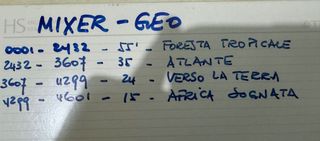 HS
MIXER - GEO
0001 - 2432 - 55' - FORESTA TROPICALE
2432 - 3607 - 35 - ATLANTE
3607 - 4299 - 24 - VERSO LA TERRA
4299 - 4601 - 15 - AFRICA SOGNATA